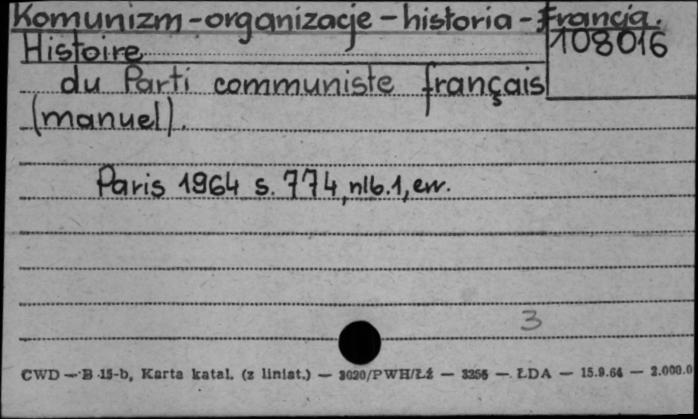 Komunizm - organizacje - historia - Francja.
108016
Histoire
du Parti communiste français
(manuel).
Paris 1964 s. 774, nlb. 1, err.
3
CWD — B 15-b, Karta katal. (z liniat.) — 3020/PWH/Łź — 3256 — ŁDA — 15.9.64 — 2.000.0